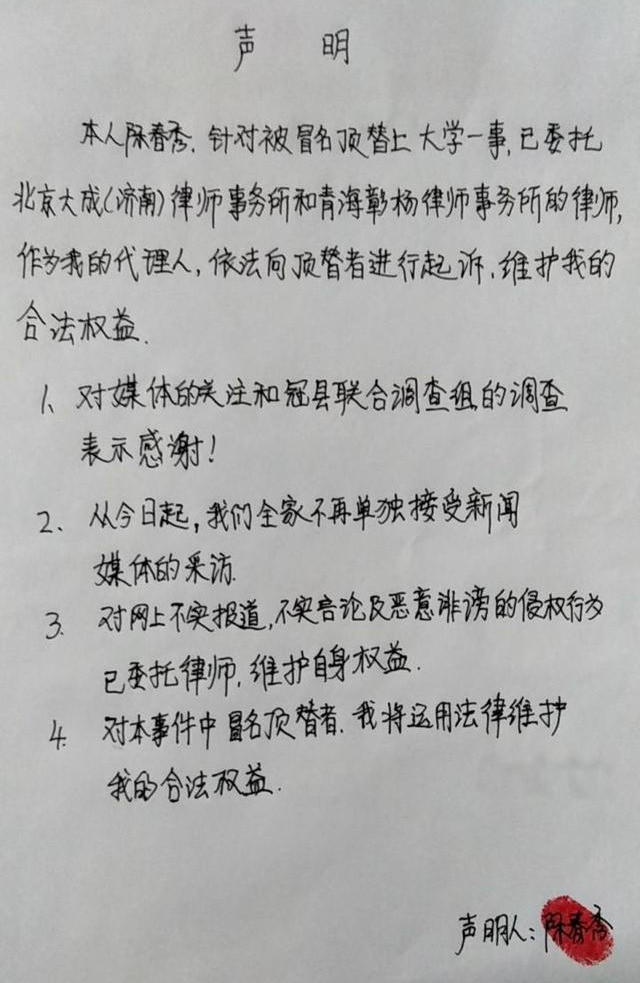 声 明
本人陈春秀,针对被冒名顶替上大学一事,已委托
北京大成(济南)律师事务所和青海彰杨律师事务所的律师,
作为我的代理人,依法向顶替者进行起诉,维护我的
合法权益.
1、对媒体的关注和冠县联合调查组的调查
表示感谢!
2、从今日起,我们全家不再单独接受新闻
媒体的采访.
3. 对网上不实报道,不实言论及恶意诽谤的侵权行为
已委托律师,维护自身权益.
4. 对本事件中冒名顶替者.我将运用法律维护
我的合法权益.
声明人:陈春秀